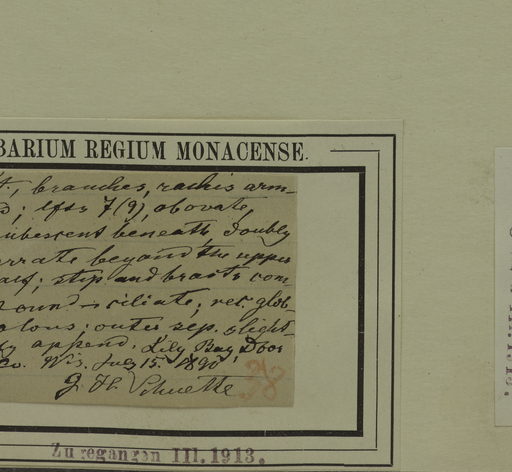 BARIUM REGIUM MONACENSE.
branches, rachis arm-
; lfts 7(9), obovate,
ubescent beneath doubly
errate beyond the upper
alf; stip and bracts com-
pound + ciliate; rec. glob-
; outer sep. slight-
ly append. Lily Bay, Door
Co. Wis. July 15. 1890
J. H. Schuette
Zugegangen III. 1913.